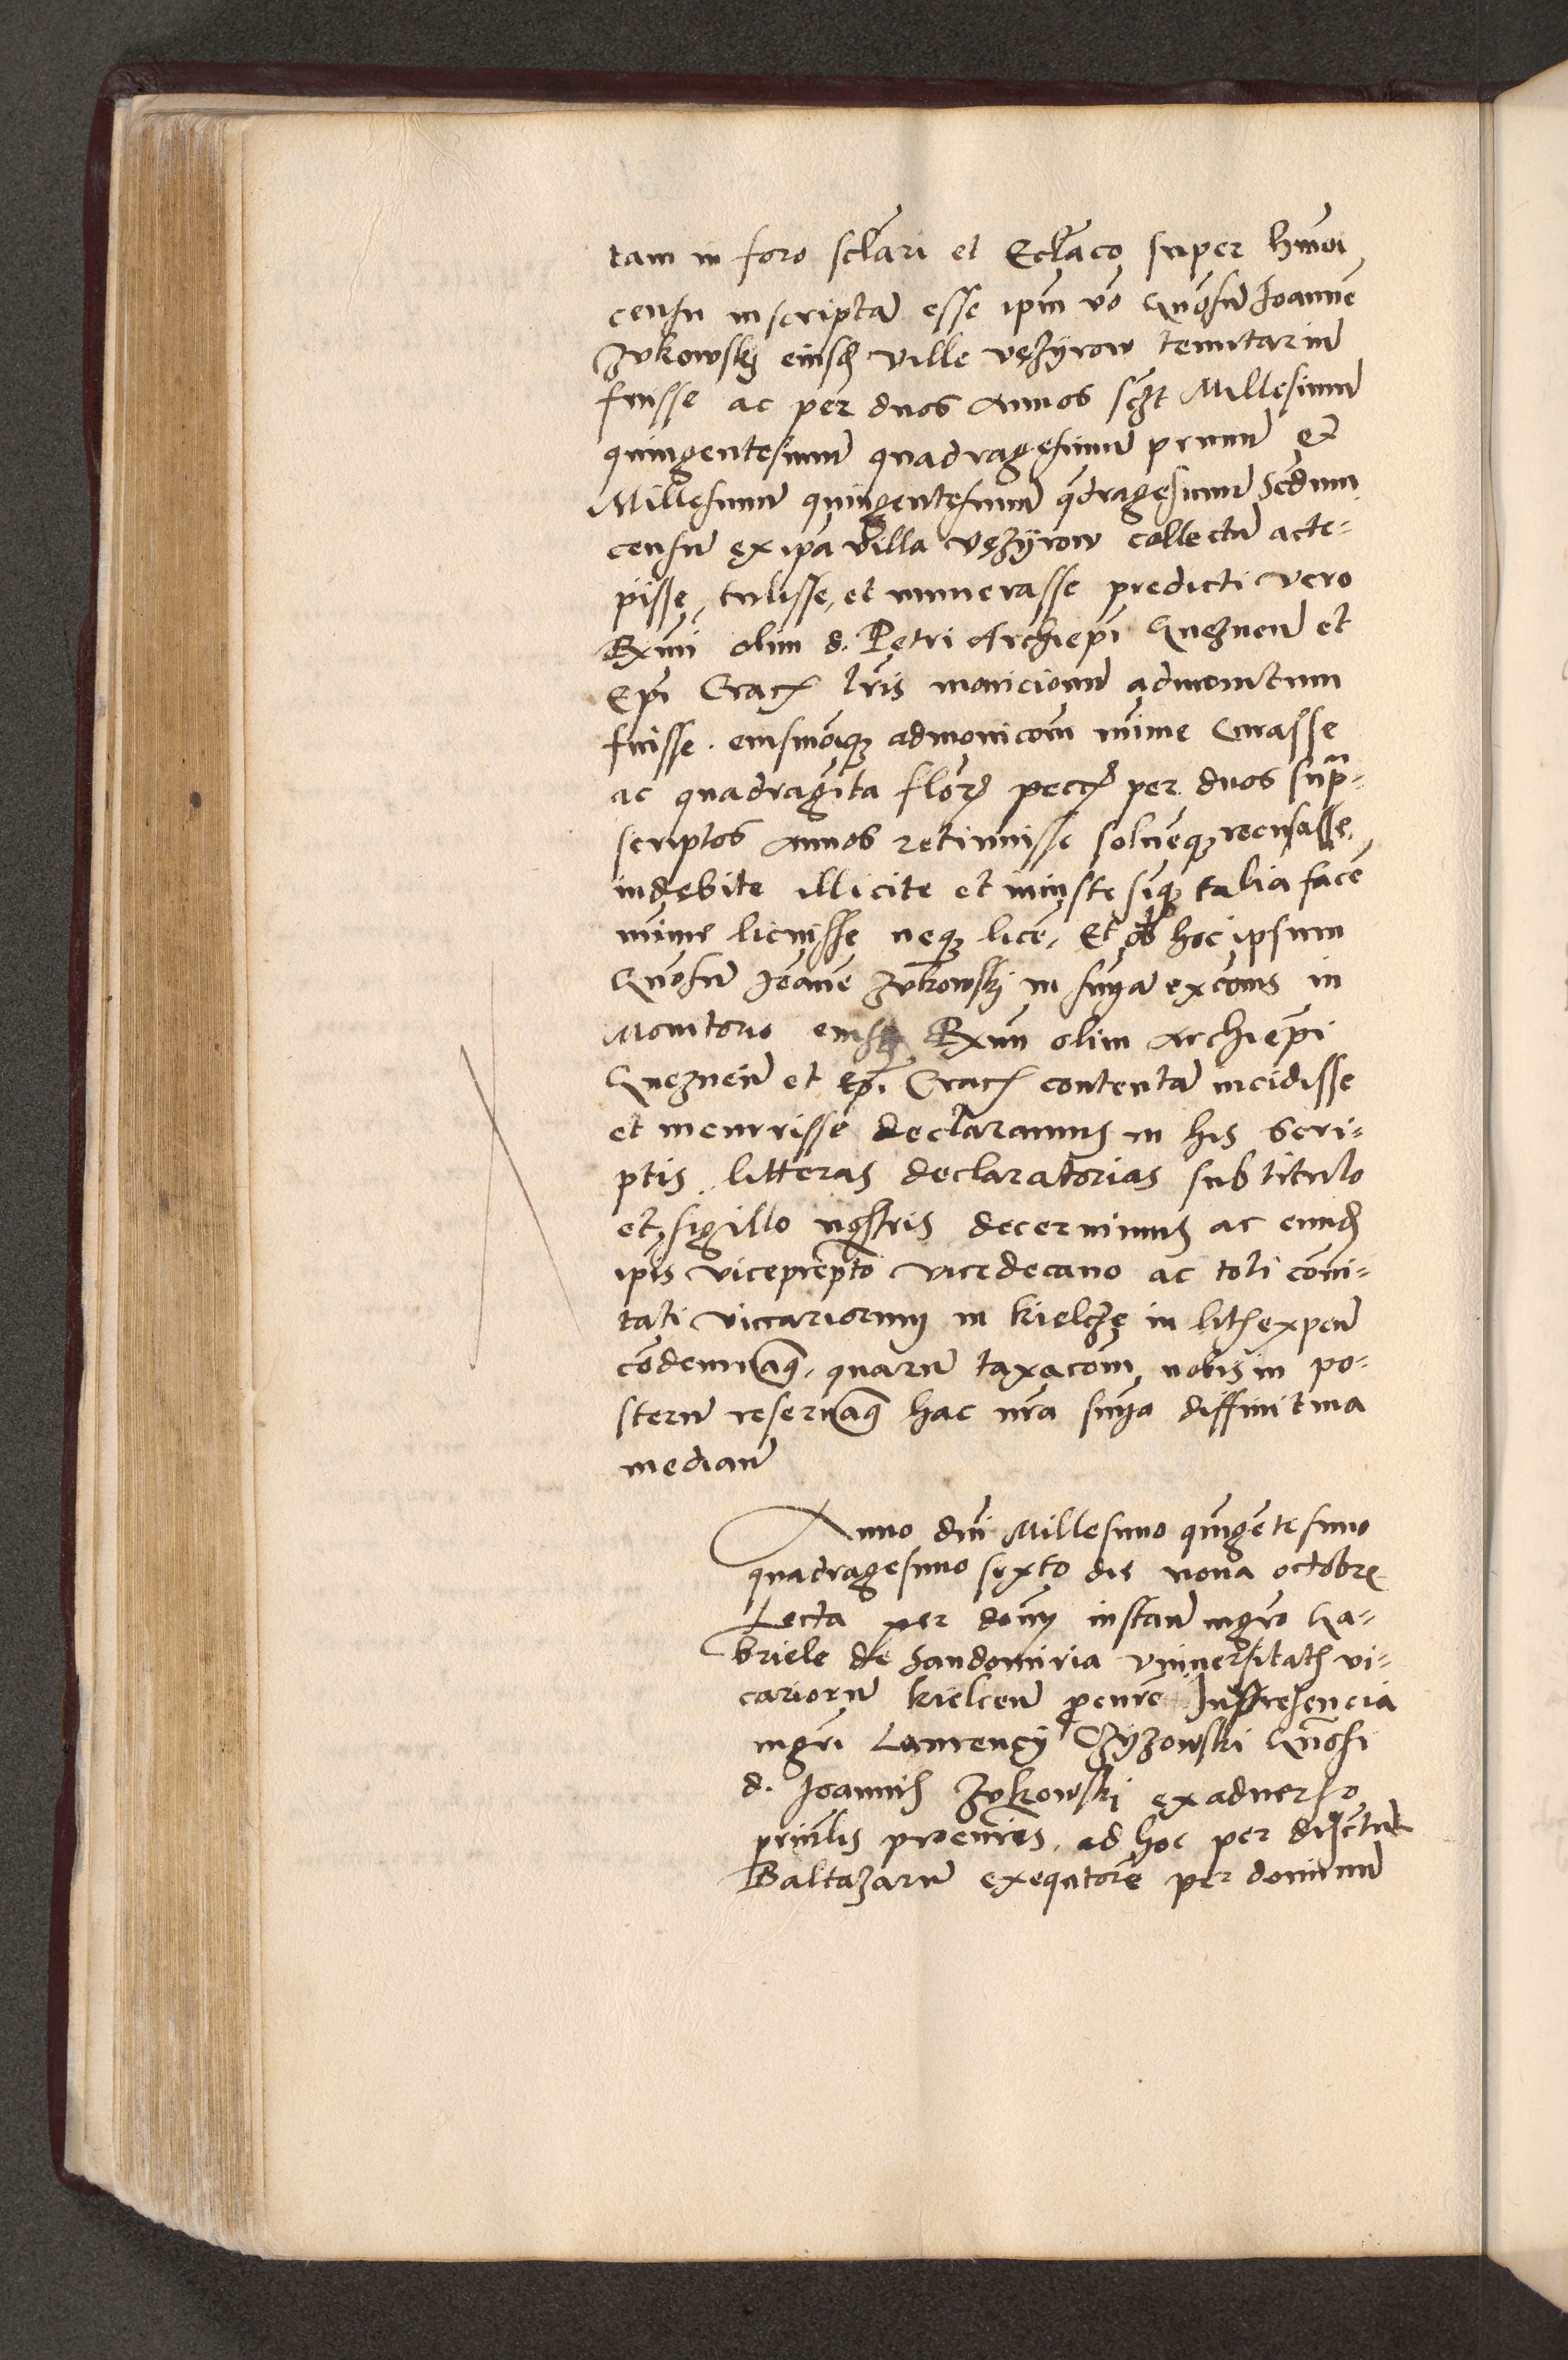 tam in foro sclari et Ecclaco super hmoi
censu inscriptam esse ipm vo Gnosum Joannem
Zukowski eiusd ville vezyrow tenutarium
fuisse ac per duos annos sczt Millesimum
quingentesimum quadragesimum primum et
Millesimum quingentesimum qdragesimum Scdum
censum ex ipa villa vezyrow collectum acce=
pisse, tulisse, et numerasse predicti vero
Rxmi olim d. Petri Archiepi Gneznen et
Epi Crac lris monicionum admonitum
fuisse. eiusmoiq admonicom mime curasse
ac quadraginta flor pecc per duos supra=
scriptos annos retinuisse solueq recusasse,
indebite illicite et iniuste sicq talia face
mime licuisse neq lice, Et ob hoc ipsum
Gnosum Joanem Zukowski in sniam excois in
Monitorio eiusd Rxmi olim Archiepi
Gneznen et Epi Crac contentam incidisse
et incurrisse declaramus in his scri=
ptis. litteras declaratorias sub titulo
et sigillo nostris decernimus ac eund
ipis viceprepto vicedecano ac toti comi=
tati viccariorum in kielcze in litis expen
condemnaq, quarum taxacom nobis in po=
sterum reseruaq hac nra snia diffinitiua
median
Anno dni Millesimo quingentesimo
quadragesimo sexto die nona octobre
Lecta per donum instan mgro Ga=
briele de Sandomiria vniuersitatis vi=
cariorum kielcen pcure In presencia
mgri Laurency Czyzowski Gnosi
d. Joannis Zukowski ex aduerso
princlis procuris. ad hoc per discretum
Baltazarum exequtore per dominum